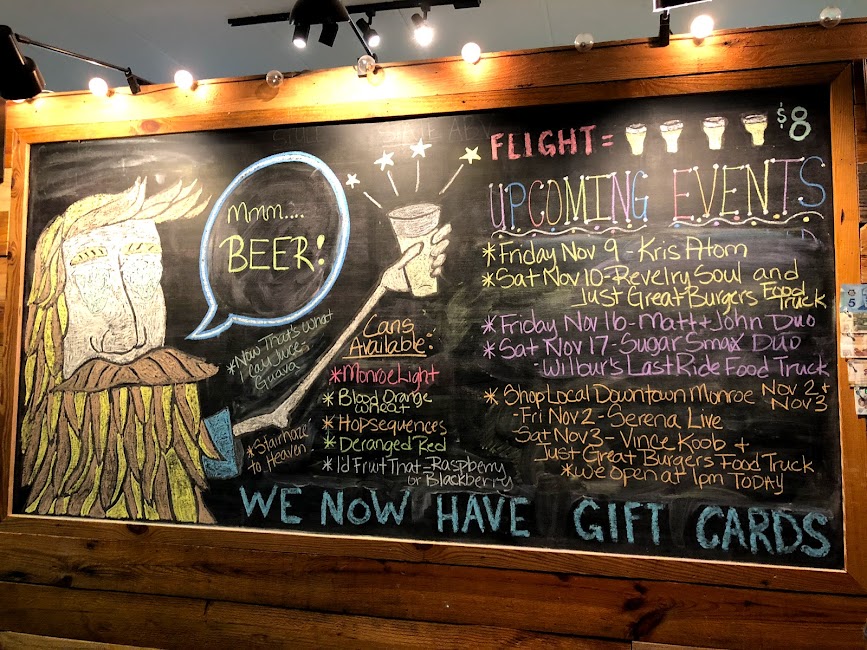 Mmm....
BEER!
*Now That's What
I Call Juice -
Guava
*Stairhaze
to Heaven
Cans
Available:
*Monroe Light
*Blood Orange
Wheat
*Hopsequences
*Deranged Red
*I'd Fruit That - Raspberry
or Blackberry
FLIGHT = $8
UPCOMING EVENTS
*Friday Nov 9 - Kris Atom
*Sat Nov 10 - Revelry Soul and
Just Great Burgers Food
Truck
*Friday Nov 16 - Matt + John Duo
*Sat Nov 17 - Sugar Smax Duo
- Wilbur's Last Ride Food Truck
*Shop Local Downtown Monroe Nov 2 +
Nov 3
- Fri Nov 2 - Serena Live
Sat Nov 3 - Vince Koob +
Just Great Burgers Food Truck
*We open at 1pm TODAY
WE NOW HAVE GIFT CARDS